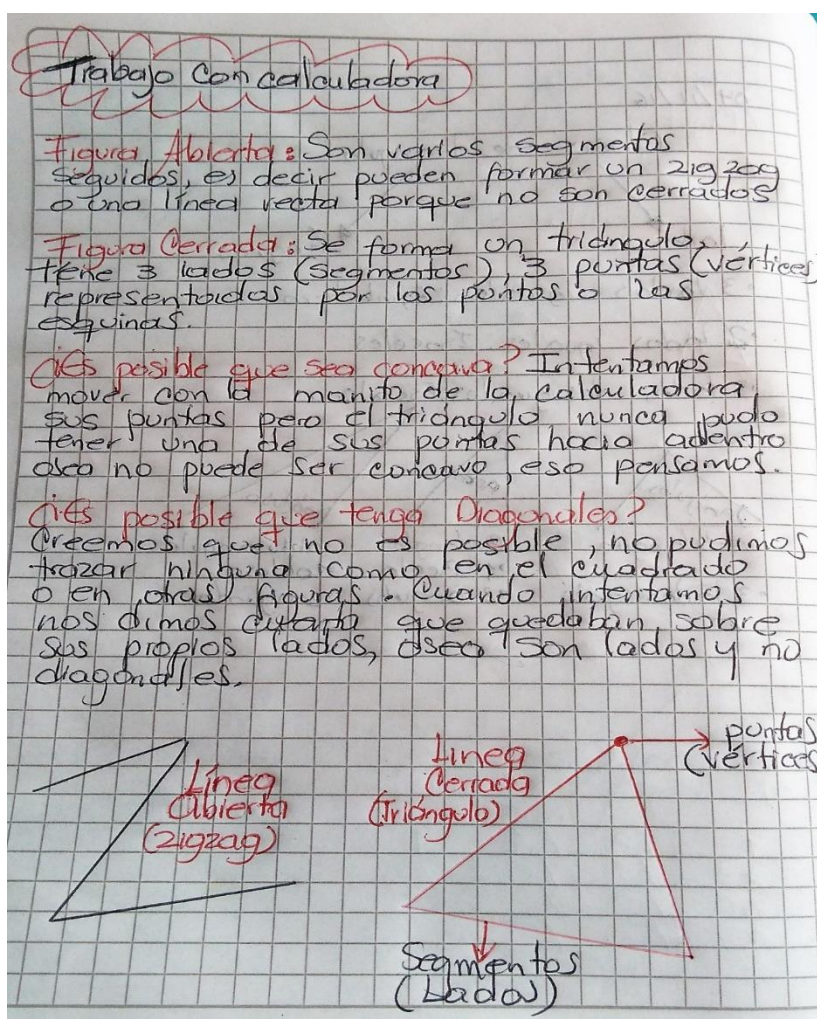 Trabajo Con calculadora
Figura Abierta: Son varios segmentos
seguidos, es decir pueden formar un zigzag
o una línea recta porque no son cerrados
Figura Cerrada: Se forma un triángulo,
tiene 3 lados (segmentos), 3 puntas (vértices
representadas por los puntos o las
esquinas.
¿Es posible que sea concava? Intentamos
mover con la manito de la calculadora
sus puntas pero el triángulo nunca pudo
tener una de sus puntas hacia adentro
osea no puede ser concavo, eso pensamos.
¿Es posible que tenga Diagonales?
Creemos que no es posible, no pudimos
trazar ninguna como en el cuadrado
o en otras figuras. Cuando intentamos
nos dimos cuenta que quedaban sobre
sus propios lados, osea son lados y no
diagonales.
Línea
abierta
(zigzag)
Linea
Cerrada
(triángulo)
puntas
(vértices
Segmentos
(Lados)